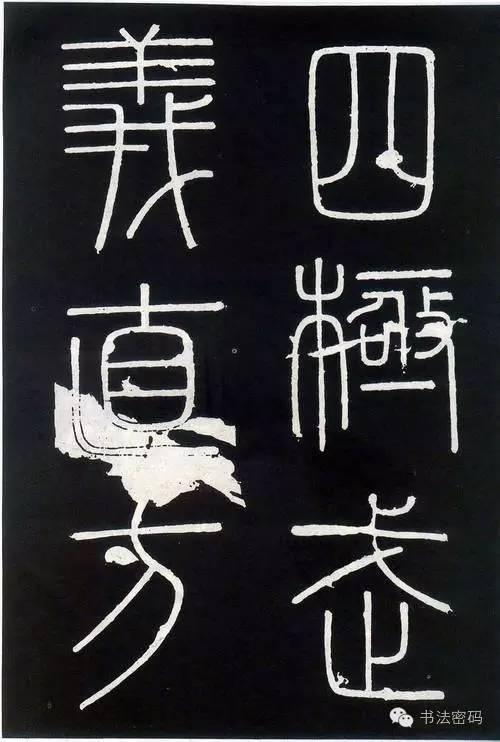 四極武
義直方
书法密码